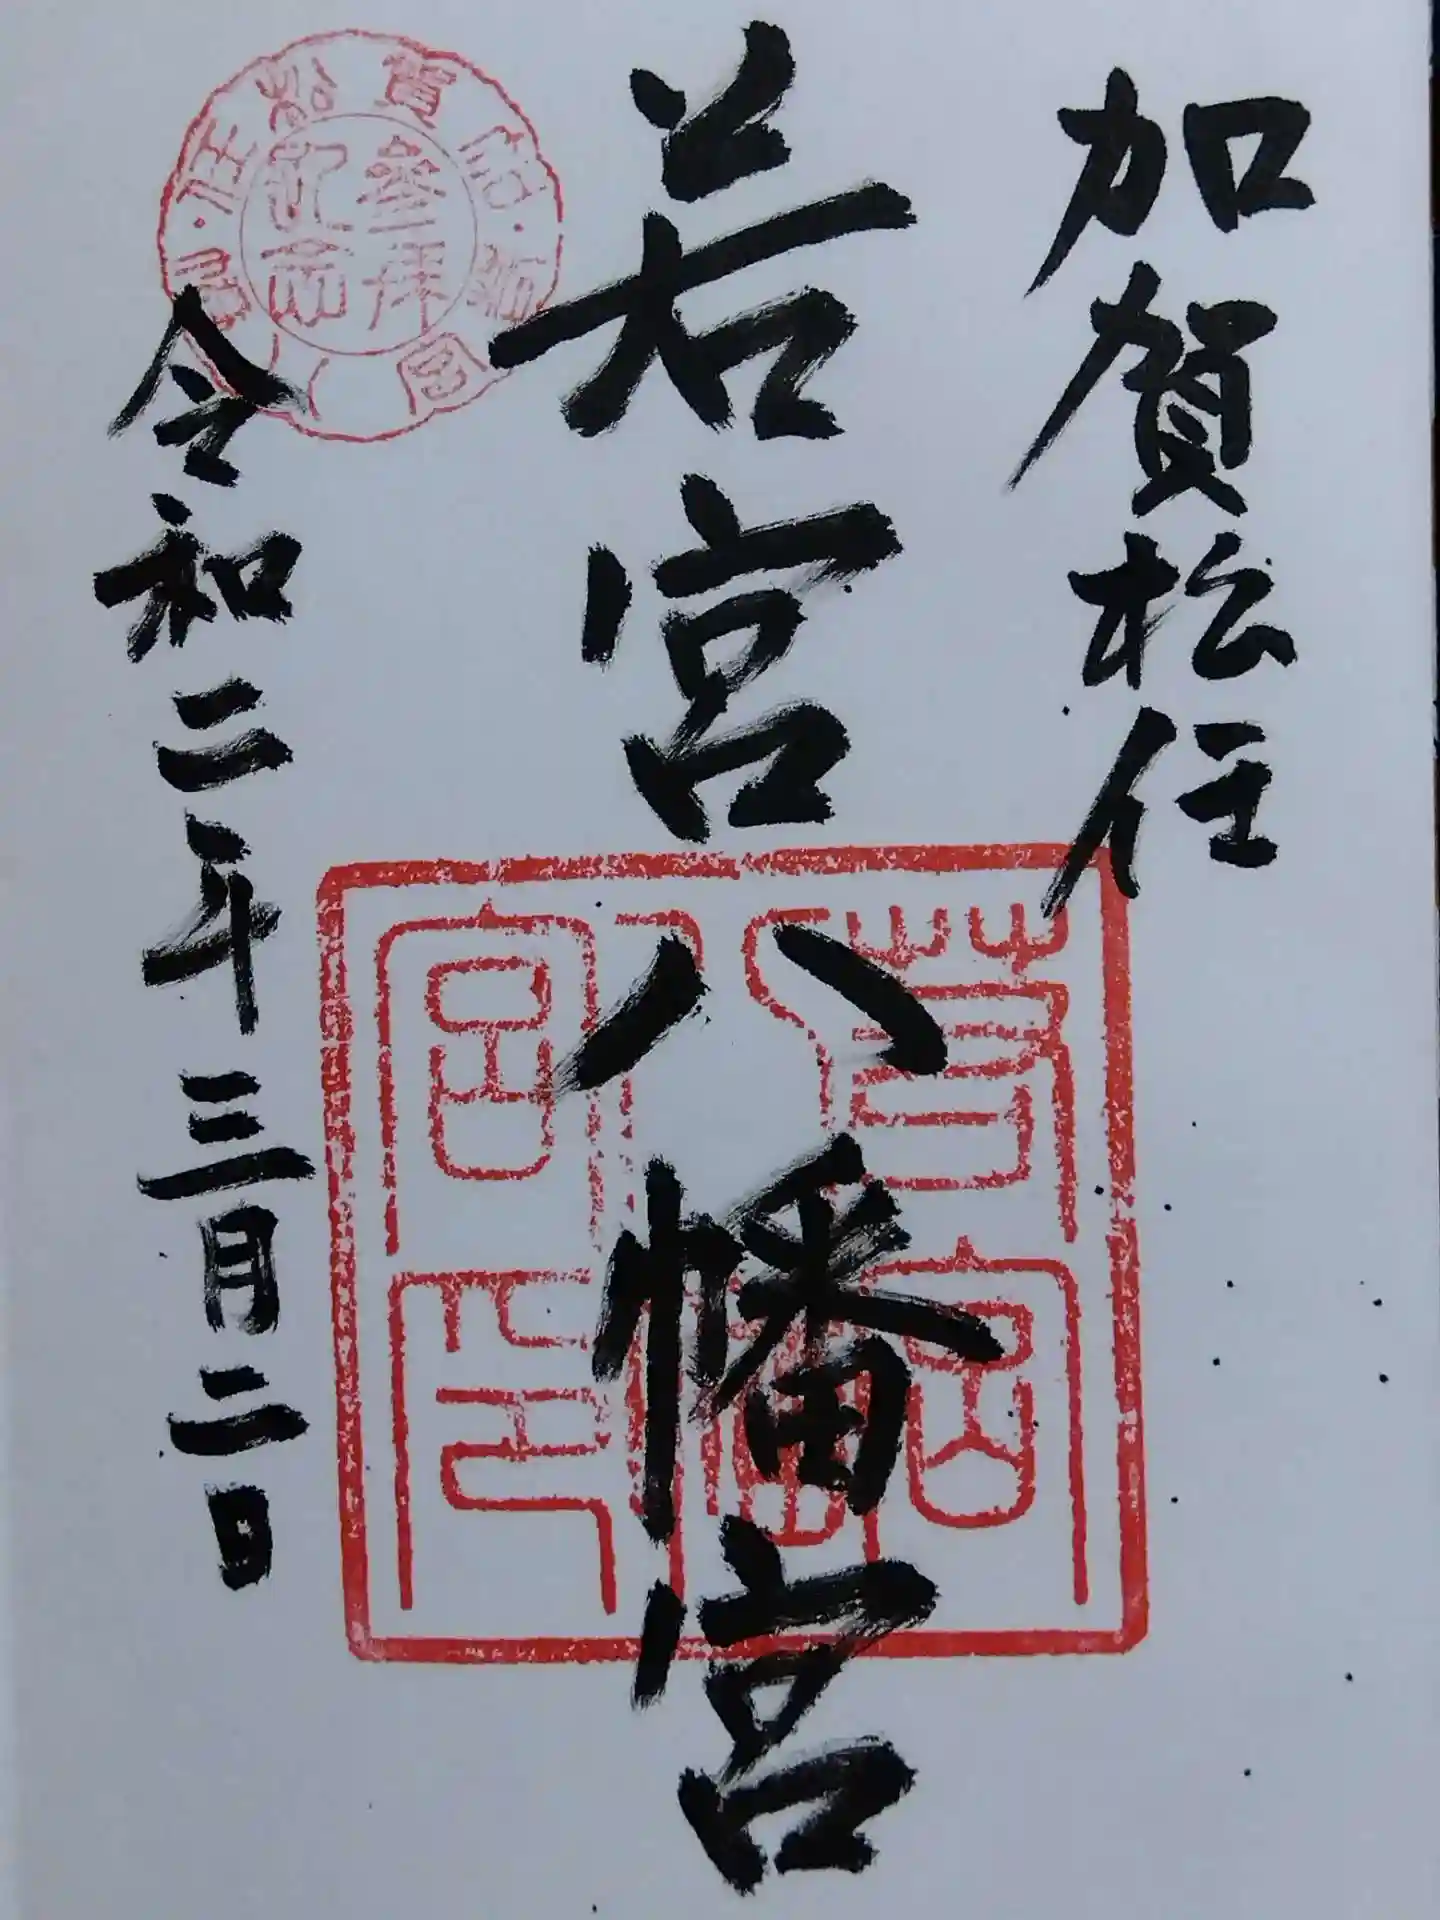 加賀松任
若宮八幡宮
令和二年三月二日
加賀松任・若宮八幡宮
参拝記念
若宮八幡宮印